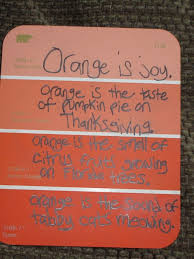 Orange is joy.
orange is the taste
of pumpkin pie on
Thanksgiving.
orange is the smell of
citrus fruits growing
on Florida trees.
orange is the sound of
tabby cats meowing.